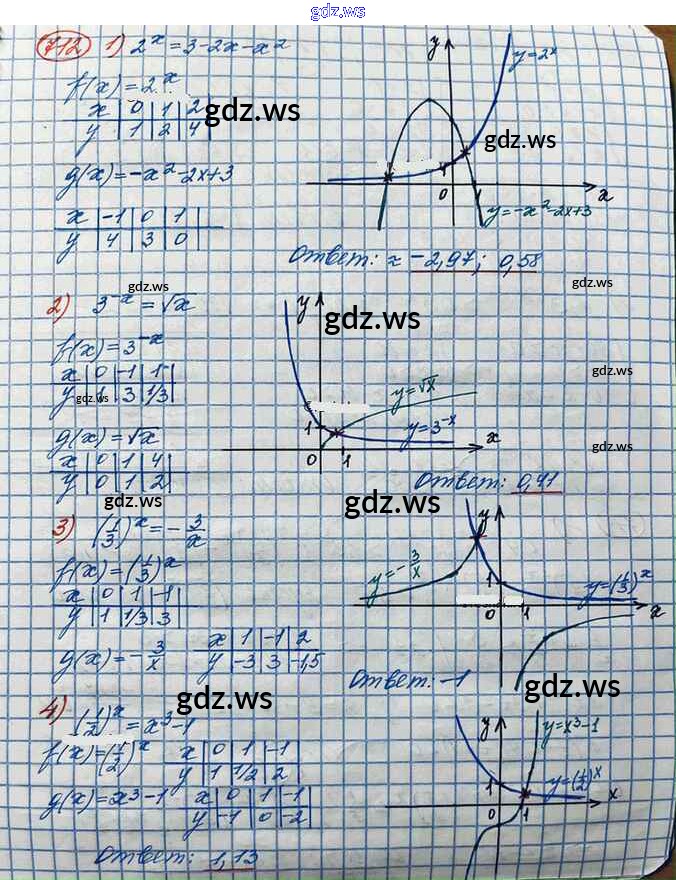 gdz.ws
712 1) 2^x = 3-2x-x^2
f(x)=2^x
x | 0 | 1 | 2
y | 1 | 2 | 4
gdz.ws
g(x)=-x^2-2x+3
x | -1 | 0 | 1
y | 4 | 3 | 0
y
y=2^x
gdz.ws
1
0
x
y=-x^2-2x+3
Ответ: ≈ -2,97; 0,58
gdz.ws
2) 3^-x = √x
f(x)=3^-x
x | 0 | -1 | 1
y | 1 | 3 | 1/3
gdz.ws
g(x)=√x
x | 0 | 1 | 4
y | 0 | 1 | 2
gdz.ws
y
gdz.ws
gdz.ws
y=√x
1
y=3^-x
x
0
1
gdz.ws
Ответ: 0,41
gdz.ws
3) (1/3)^x = -3/x
f(x)=(1/3)^x
x | 0 | 1 | -1
y | 1 | 1/3 | 3
g(x)=-3/x
x | 1 | -1 | 2
y | -3 | 3 | -1,5
y
y=-3/x
1
y=(1/3)^x
0
1
x
Ответ: -1
gdz.ws
gdz.ws
4) (1/2)^x = x^3-1
f(x)=(1/2)^x
x | 0 | 1 | -1
y | 1 | 1/2 | 2
g(x)=x^3-1
x | 0 | 1 | -1
y | -1 | 0 | -2
gdz.ws
y
y=x^3-1
1
y=(1/2)^x
x
0
1
Ответ: 1,13